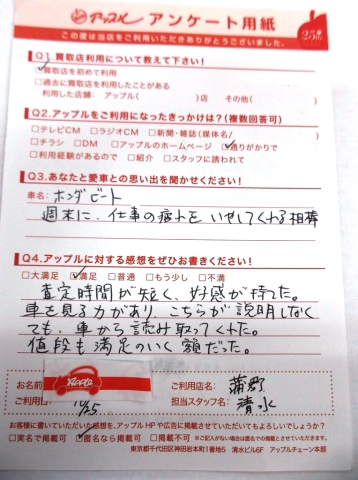 アップル アンケート用紙
25th
この度は当店をご利用いただきありがとうございました。
Q1.買取店利用について教えて下さい!
☑買取店を初めて利用
□過去に買取店を利用したことがある
利用した店舗: アップル( )店 その他( )
Q2.アップルをご利用になったきっかけは?(複数回答可)
□テレビCM □ラジオCM □新聞・雑誌(媒体名/ )
□チラシ □DM □アップルのホームページ ☑通りがかりで
□利用経験があるので □紹介 □スタッフに誘われて
Q3.あなたと愛車との思い出を聞かせください!
車名: ホンダビート
週末に、仕事の疲れを いやしてくれる相棒
Q4.アップルに対する感想をぜひお書きください!
□大満足 ☑満足 □普通 □もう少し □不満
査定時間が短く、好感が持てた。
車を見る力があり、こちらが説明しなく
ても、車から読み取ってくれた。
値段も満足のいく額だった。
お名前
ご利用店名: 蒲郡
ご利用日:
担当スタッフ名: 清水
お客様に書いていただいた感想を、アップルHPや広告に掲載させていただいてもよろしいでしょうか?
□実名で掲載可 ☑匿名なら掲載可 □掲載不可 ※ご記入がない場合は匿名での掲載とさせていただきます。
東京都千代田区神田岩本町1番地5 清水ビル6F アップルチェーン本部